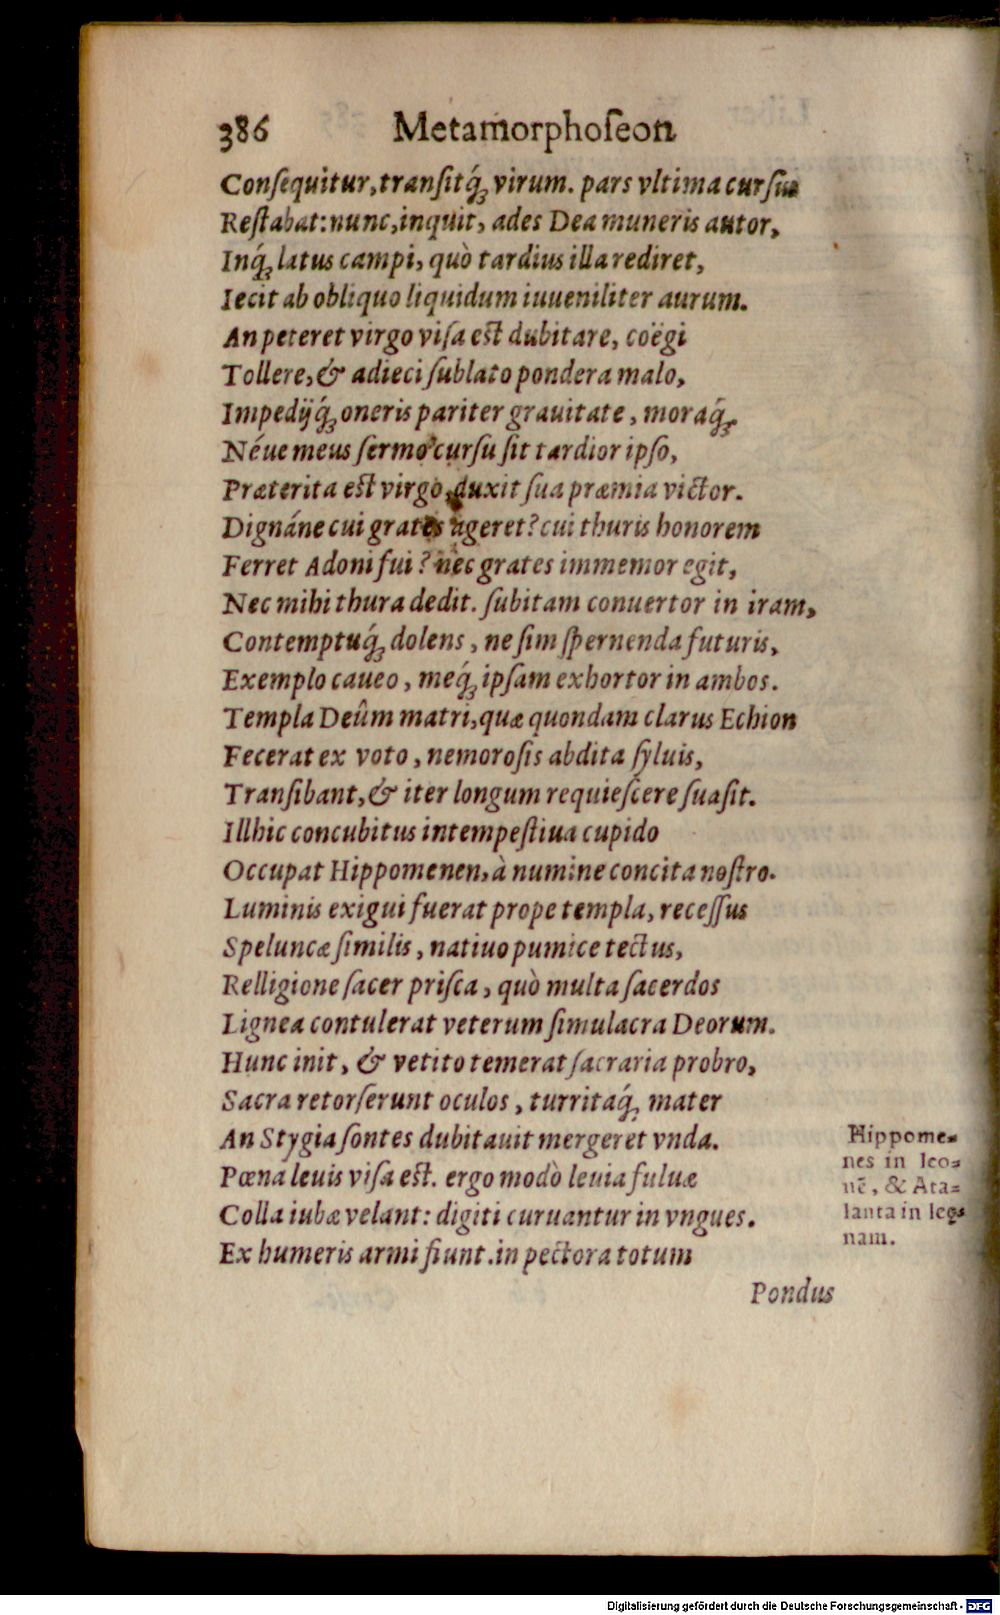 386 Metamorphoſeon
Conſequitur, tranſitq́; virum. pars vltima curſus
Reſtabat: nunc, inquit, ades Dea muneris autor,
Inq́; latus campi, quò tardius illa rediret,
Iecit ab obliquo liquidum iuueniliter aurum.
An peteret virgo viſa eſt dubitare, coëgi
Tollere, & adieci ſublato pondera malo,
Impedijq́; oneris pariter grauitate, moraq́;.
Néue meus ſermo curſu ſit tardior ipſo,
Præterita eſt virgo, duxit ſua præmia victor.
Dignáne cui grates ageret? cui thuris honorem
Ferret Adoni fui? nec grates immemor egit,
Nec mihi thura dedit. ſubitam conuertor in iram,
Contemptuq́; dolens, ne ſim ſpernenda futuris,
Exemplo caueo, meq́; ipſam exhortor in ambos.
Templa Deûm matri, quæ quondam clarus Echion
Fecerat ex voto, nemoroſis abdita ſyluis,
Tranſibant, & iter longum requieſcere ſuaſit.
Illhic concubitus intempeſtiua cupido
Occupat Hippomenen, à numine concita noſtro.
Luminis exigui fuerat prope templa, receſſus
Speluncæ ſimilis, natiuo pumice tectus,
Relligione ſacer priſca, quò multa ſacerdos
Lignea contulerat veterum ſimulacra Deorum.
Hunc init, & vetito temerat ſacraria probro,
Sacra retorſerunt oculos, turritaq́; mater
An Stygia ſontes dubitauit mergeret vnda.
Pœna leuis viſa eſt. ergo modò leuia fuluæ
Colla iubæ velant: digiti curuantur in vngues.
Ex humeris armi fiunt. in pectora totum
Hippome-
nes in leo-
nē, & Ata-
lanta in leę-
nam.
Pondus
Digitalisierung gefördert durch die Deutsche Forschungsgemeinschaft - DFG